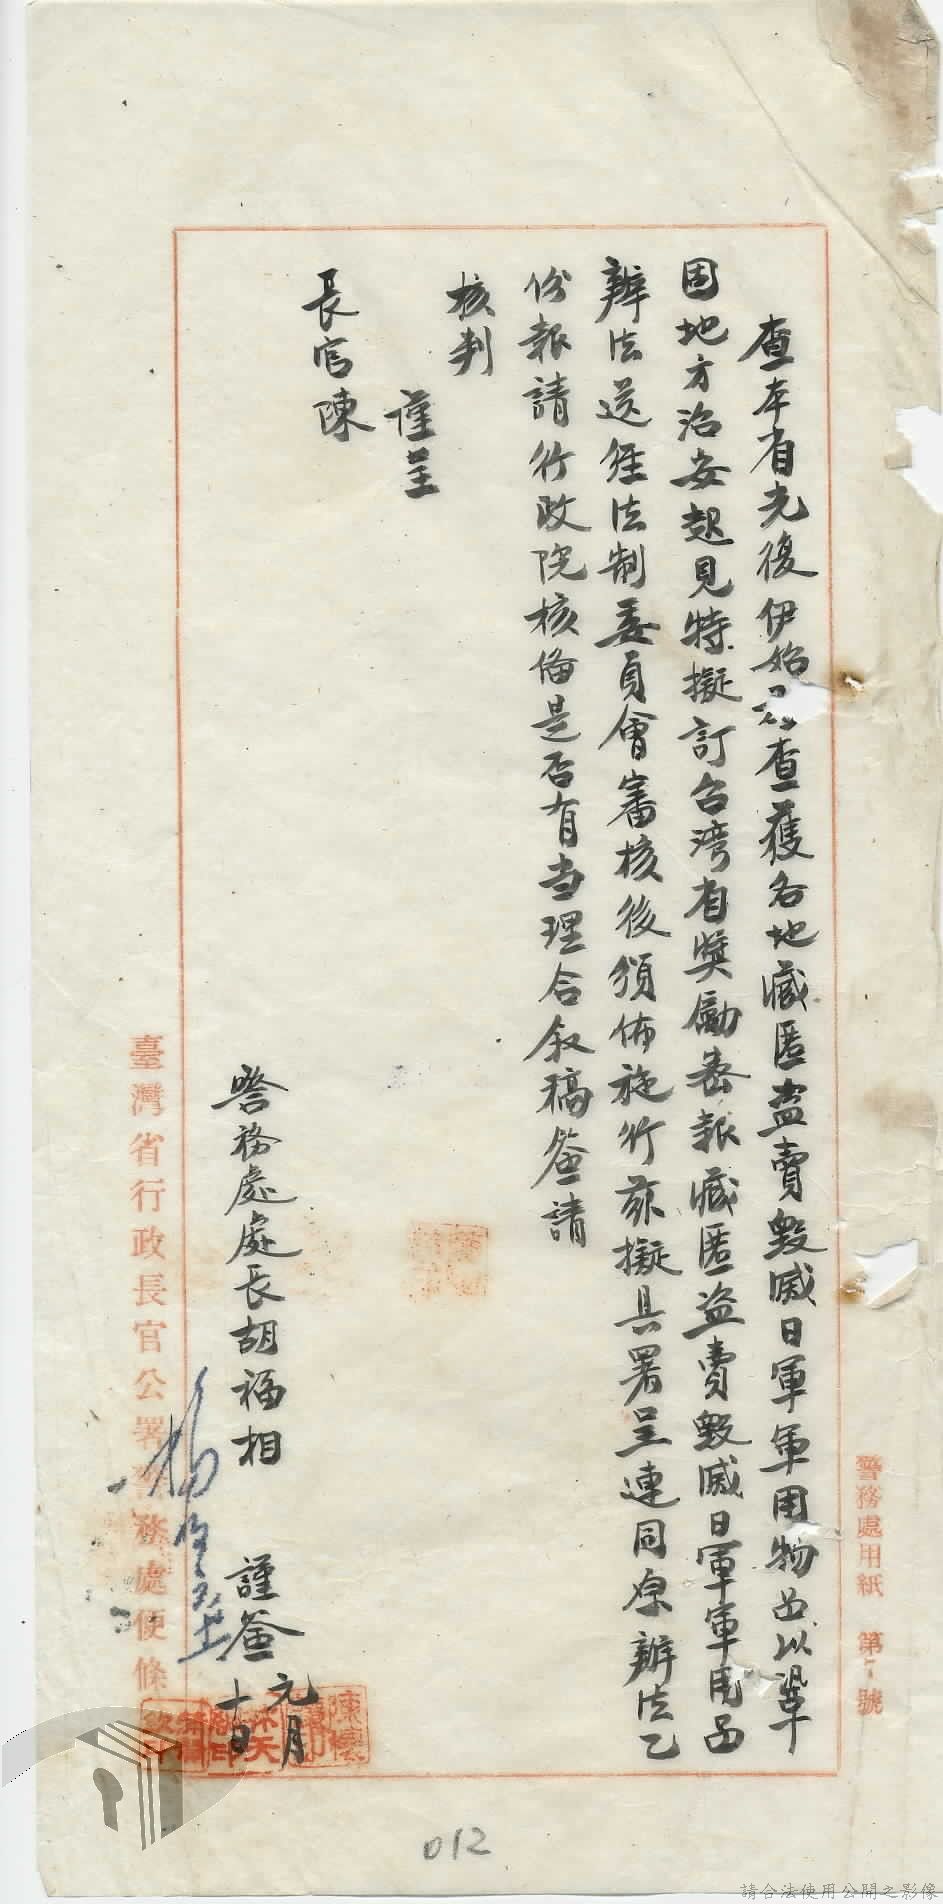 警務處用紙 第 號
查本省光復伊始 查獲各地藏匿盜賣毀滅日軍軍用物品以鞏
固地方治安起見特擬訂台湾省獎勵密報藏匿盜賣毀滅日軍軍用品
辦法送經法制委員會審核後頒佈施行茲擬具署呈連同原辦法乙
份報請行政院核備是否有当理合叙稿簽請
核判
謹呈
長官陳
警務處處長胡福相 謹簽 元月十日
臺灣省行政長官公署警務處便條
012
請合法使用公開之影像